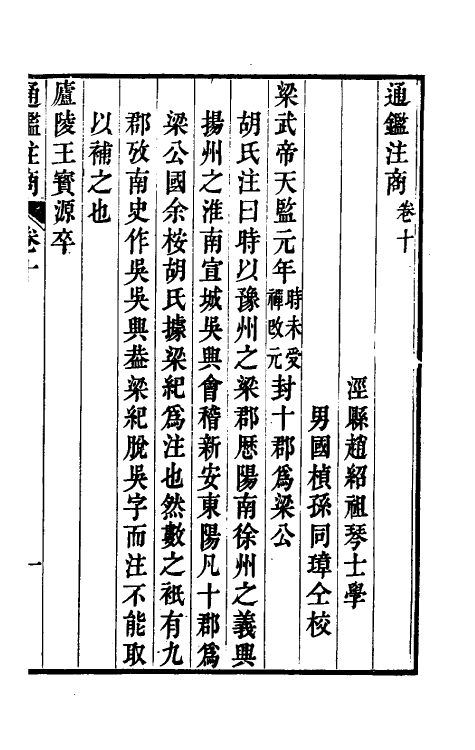 通鑑注商卷十
涇縣趙紹祖琴士學
男國楨孫同璋仝校
梁武帝天監元年時未受禪改元封十郡爲梁公
胡氏注曰時以豫州之梁郡歷陽南徐州之義興
揚州之淮南宣城吳興會稽新安東陽凡十郡爲
梁公國余桉胡氏據梁紀爲注也然數之祇有九
郡攷南史作吳吳興葢梁紀脫吳字而注不能取
以補之也
廬陵王寶源卒
通鑑注商 卷十 一